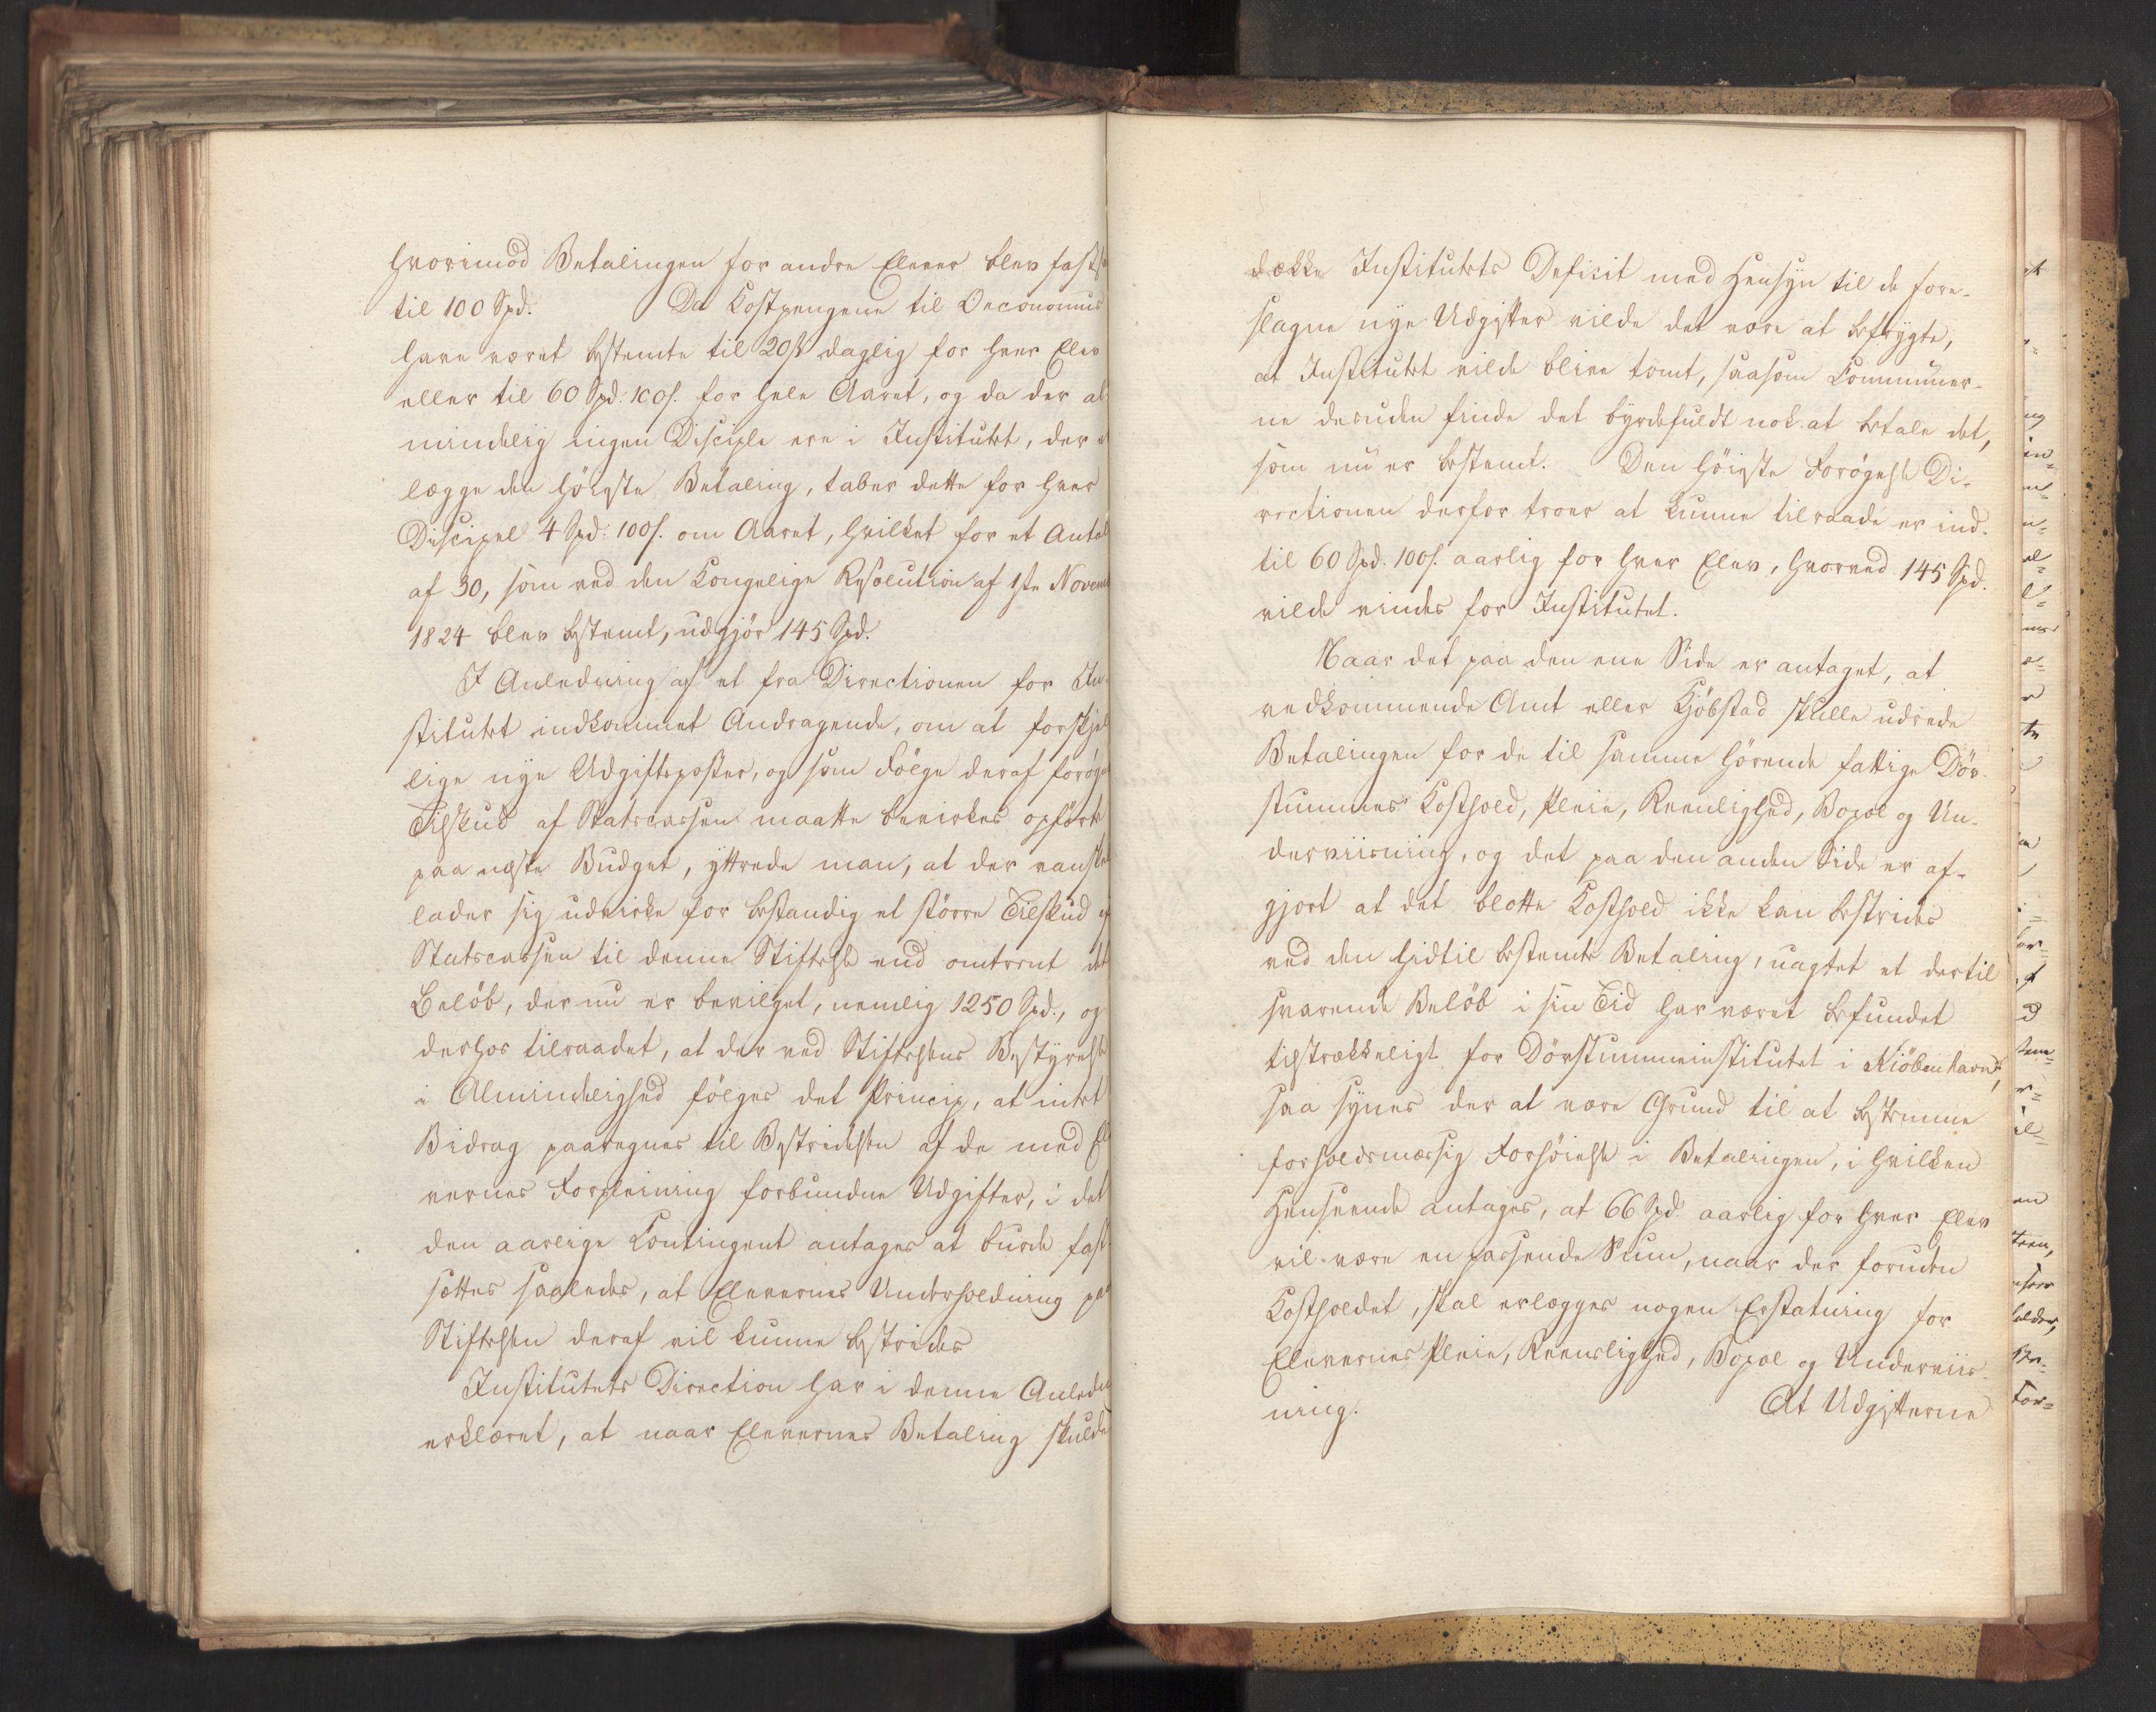 hvorimod Betalingen for andre Elever blev fasts
til 100 Spd. Da Kostpengene til Oeconomus
have været bestemte til 20ſs daglig for hver Elev
eller til 60 Spd: 100ſ. for hele Aaret, og da der al-
mindelig ingen Disciple ere i Institutet, der e
lægge den høieste Betaling, taber dette for hver
Discipel 4 Spd: 100ſ. om Aaret, hvilket for et Antal
af 30, som ved den Kongelige Resolution af 1ste Novem
1824 blev bestemt, udgjør 145 Spd.
I Anledning af et fra Directionen for In-
stitutet indkommet Andragende, om at forskjel
lige nye Udgiftsposter, og som Følge deraf forøge
Tilskud af Statscassen maatte bevirkes opførte
paa næste Budget, yttrede man, at der vanske
lader sig udvirke for bestandig et større Tilskud af
Statscassen til denne Stiftelse end omtrent det
Beløb, der nu er bevilget, nemlig 1250 Spd., og
derhos tilraadet, at der ved Stiftelsens Bestyrelse
i Almindelighed følges det Princip, at intet
Bidrag paaregnes til Bestridelsen af de med El
vernes Forpleining forbundne Udgifter, i det
den aarlige Contingent antages at burde fast-
sættes saaledes, at Elevernes Underholdning paa
Stiftelsen deraf vil kunne bestrides
Institutets Direction har i denne Anledn
erklæret, at naar Elevernes Betaling skulde
dække Institutets Deficit med Hensyn til de fore-
slagne nye Udgifter vilde det være at befrygte,
at Institutet vilde blive tomt, saasom Communer-
ne desuden finde det byrdefuldt nok at betale det,
som nu er bestemt. Den høieste Forøgelse Di-
rectionen derfor troer at kunne tilraade er ind-
til 60 Spd. 100ſ. aarlig for hver Elev, hvorved 145 Spd.
vilde vindes for Institutet.
Naar det paa den ene Side er antaget, at
vedkommende Amt eller Kjøbstad skulle udrede
Betalingen for de til samme hørende fattige Døv-
stummes Kosthold, Pleie, Reenlighed, Bopæl og Un-
derviisning, og det paa den anden Side er af-
gjort at det blotte Kosthold ikke kan bestrides
ved den hidtil bestemte Betaling, uagtet et dertil
svarende Beløb i sin Tid har været befundet
tilstrækkeligt for Døvstummeinstitutet i Kiöbenhavn,
saa synes der at være Grund til at bestemme
forholdsmæssig Forhøielse i Betalingen, i hvilken
Henseende antages, at 66 Spd. aarlig for hver Elev
vil være en passende Sum, naar der foruden
Kostholdet, skal erlægges nogen Erstatning for
Elevernes Pleie, Reenslighed, Bopæl og Underviis-
ning. At Udgifterne